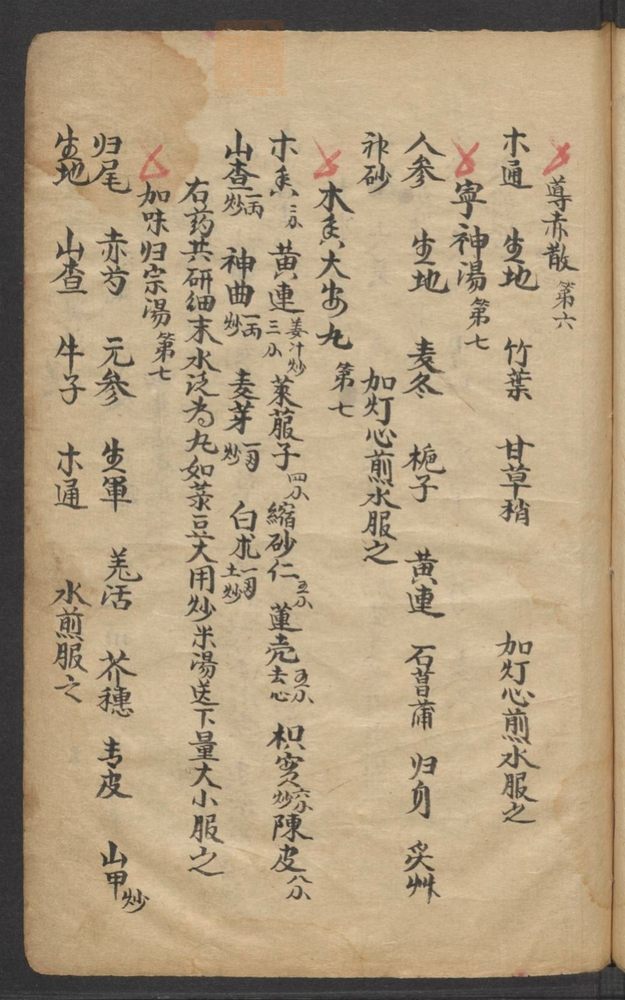 導赤散 第六
木通 生地 竹葉 甘草稍 加灯心煎水服之
寧神湯 第七
人参 生地 麦冬 梔子 黄連 石菖蒲 归身 炙艸
砂 加灯心煎水服之
木香大安丸 第七
木香三分 黄連姜汁炒三分 萊菔子四分 縮砂仁五分 蓮壳去心五分 枳实炒六分 陳皮八分
山查炒一両 神曲炒一両 麦芽炒一両 白朮土炒一両
右药共研细末水泛為丸如菉豆大用炒米湯送下量大小服之
加味归宗湯 第七
归尾 赤芍 元参 生軍 羌活 芥穗 青皮 山甲炒
生地 山查 牛子 木通 水煎服之